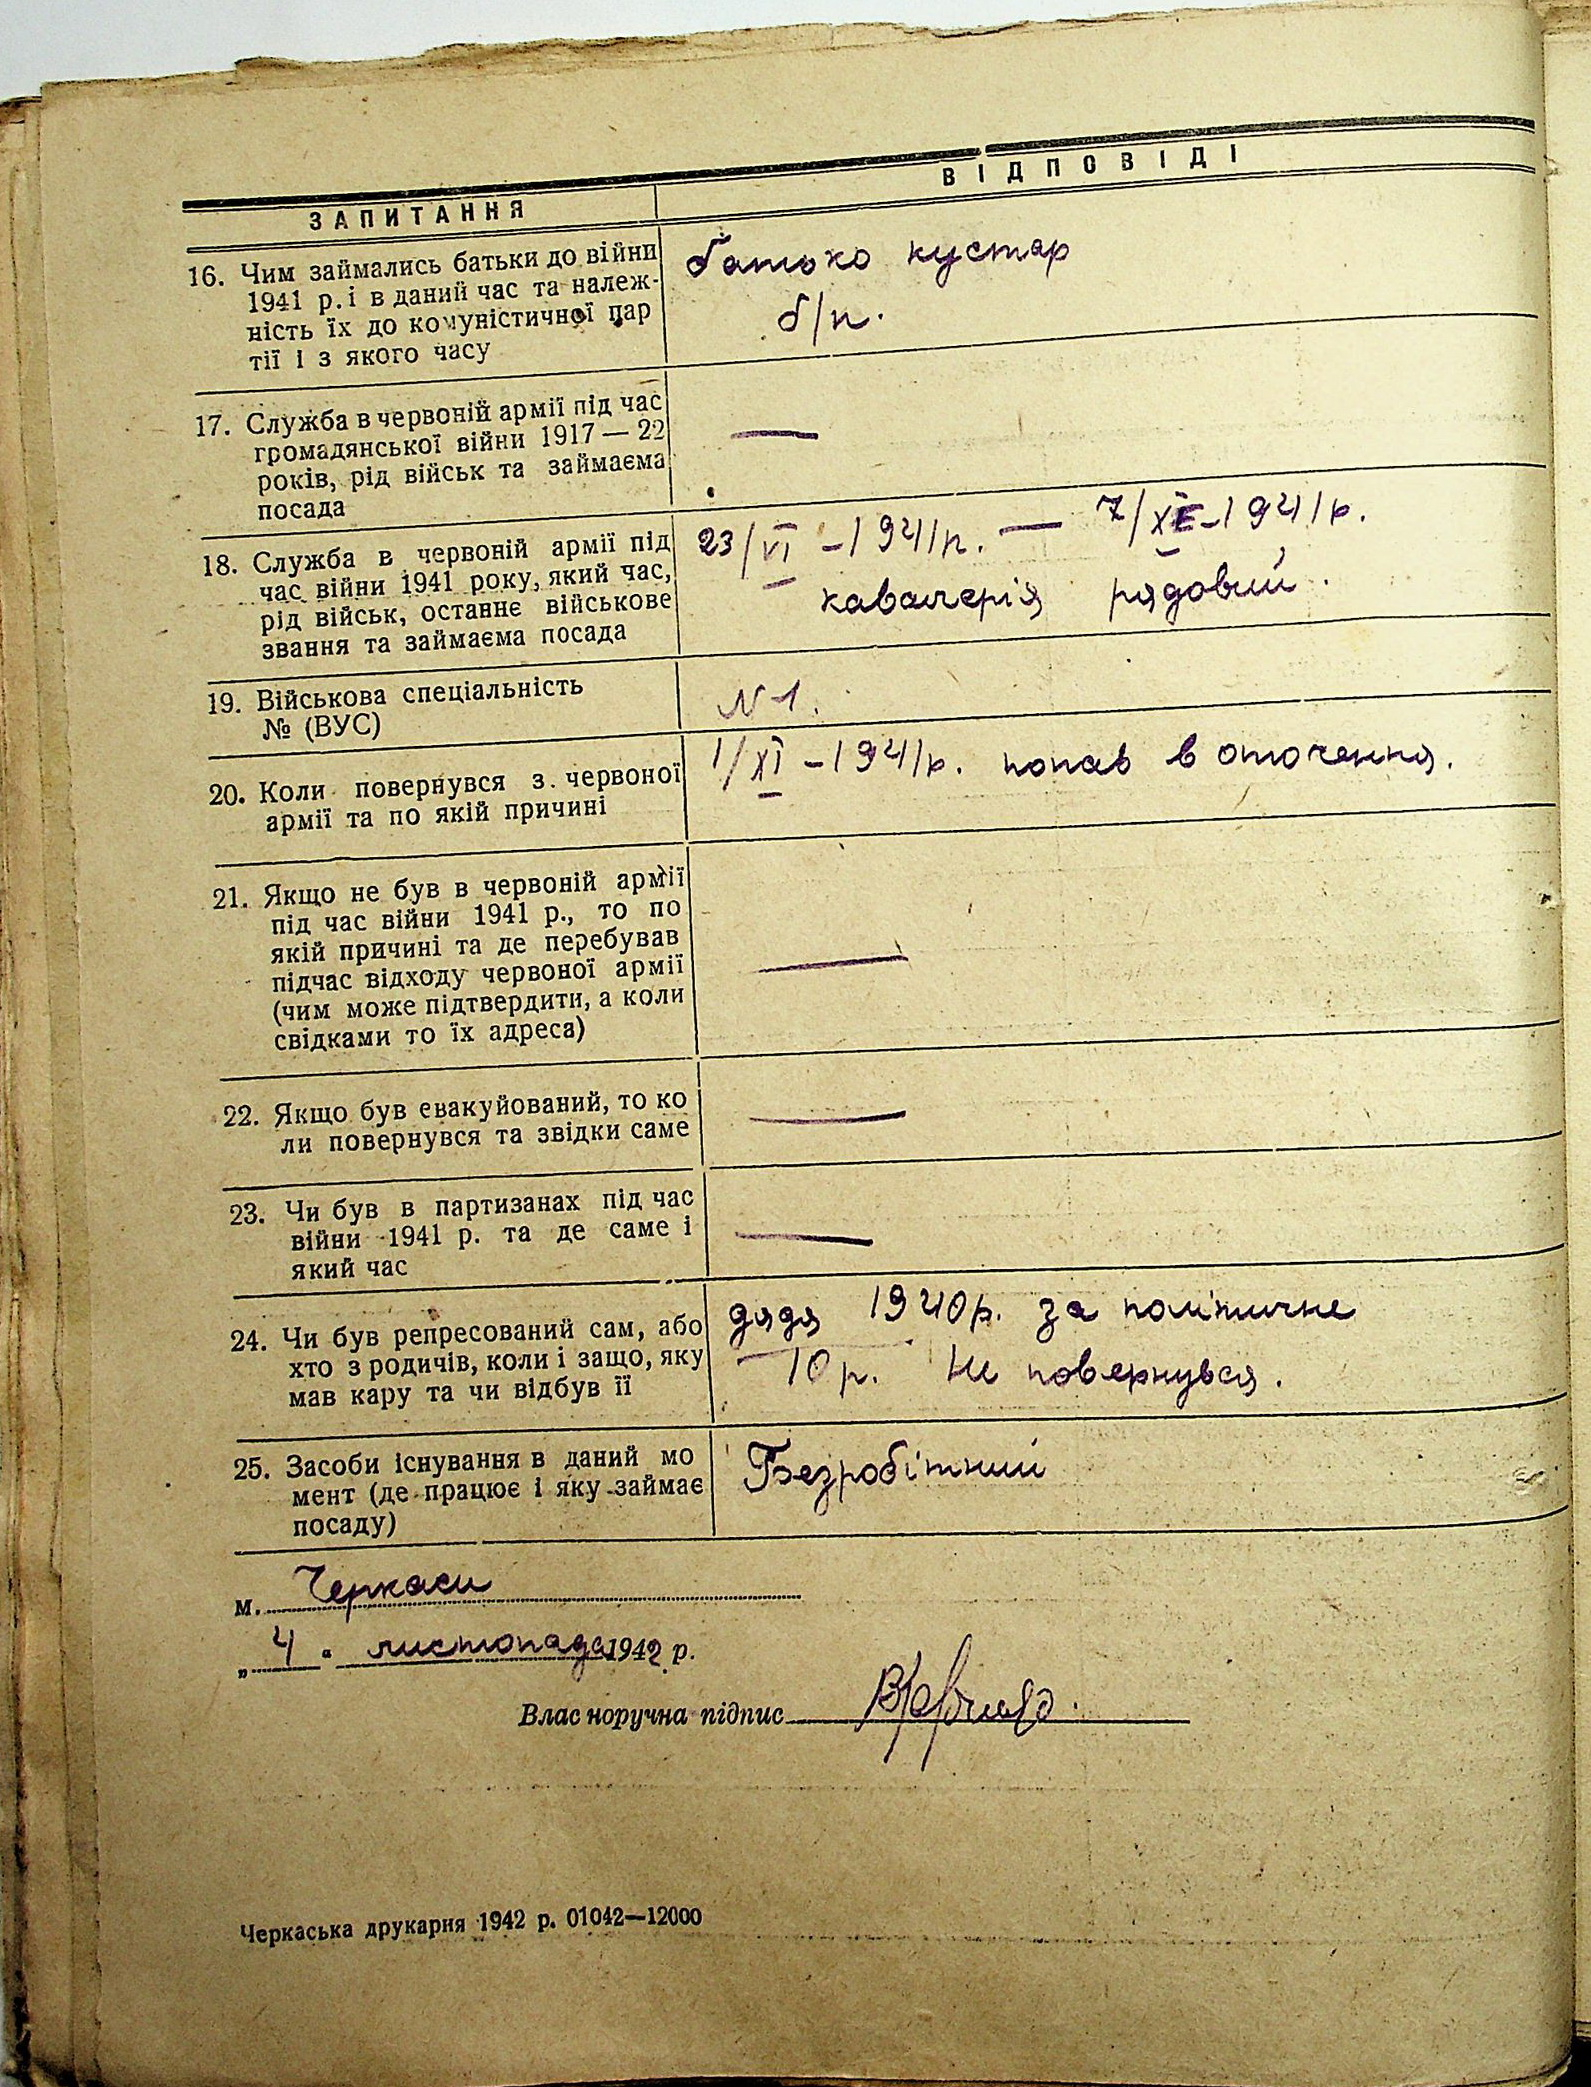 ЗАПИТАННЯ
ВІДПОВІДІ
16. Чим займались батьки до війни
1941 р. і в даний час та належ-
ність їх до комуністичної пар
тії і з якого часу
батько кустар
б/п.
17. Служба в червоній армії під час
громадянської війни 1917 — 22
років, рід військ та займаєма
посада
—
18. Служба в червоній армії під
час війни 1941 року, який час,
рід військ, останнє військове
звання та займаєма посада
23/VI – 1941 р. — 7/XI – 1941 р.
кавалерія рядовий.
19. Військова спеціальність
№ (ВУС)
N 1.
20. Коли повернувся з червоної
армії та по якій причині
1/XI – 1941 р. попав в оточення.
21. Якщо не був в червоній армії
під час війни 1941 р., то по
якій причині та де перебував
підчас відходу червоної армії
(чим може підтвердити, а коли
свідками то їх адреса)
—
22. Якщо був евакуйований, то ко
ли повернувся та звідки саме
—
23. Чи був в партизанах під час
війни 1941 р. та де саме і
який час
—
24. Чи був репресований сам, або
хто з родичів, коли і защо, яку
мав кару та чи відбув її
дядя 1940 р. за политичне
10 р. Не повернувся.
25. Засоби існування в даний мо
мент (де працює і яку займає
посаду)
Безробітний
м. Черкаси
„ 4 “ листопада 1942 р.
Власноручна підпис
Черкаська друкарня 1942 р. 01042—12000